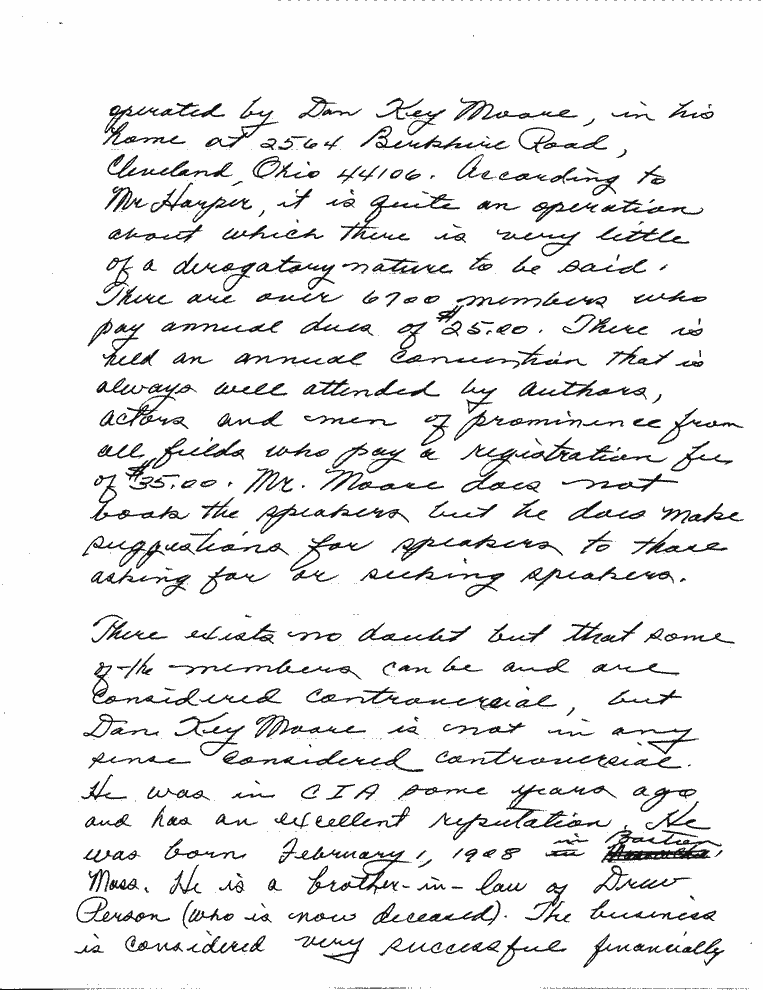 operated by Dan Key Moore, in his
home at 2564 Berkshire Road,
Cleveland, Ohio 44106. According to
Mr Harper, it is quite an operation
about which there is very little
of a derogatory nature to be said.
There are over 6700 members who
pay annual dues of $25.00. There is
held an annual convention that is
always well attended by authors,
actors and men of prominence from
all fields who pay a registration fee
of $35.00. Mr. Moore does not
book the speakers but he does make
suggestions for speakers to those
asking for or seeking speakers.
There exists no doubt but that some
of the members can be and are
considered controversial, but
Dan Key Moore is not in any
sense considered controversial.
He was in CIA some years ago
and has an excellent reputation. He
was born February 1, 1908 in Boston,
Mass. He is a brother-in-law of Drew
Person (who is now deceased). The business
is considered very successful financially